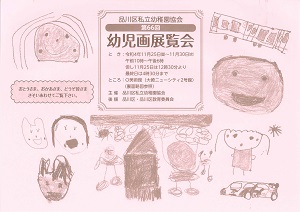 品川区私立幼稚園協会
第66回
幼児画展覧会
とき：令和4年11月25日㈮～11月30日㈬
午前10時～午後6時
但し11月25日は12時30分より
最終日は4時30分まで
ところ：O美術館（大崎ニューシティ2号館）
主催 品川区私立幼稚園協会
後援 品川区・品川区教育委員会
おとうさま、おかあさま、どうぞ皆さま
さそいあわせてご覧下さい。